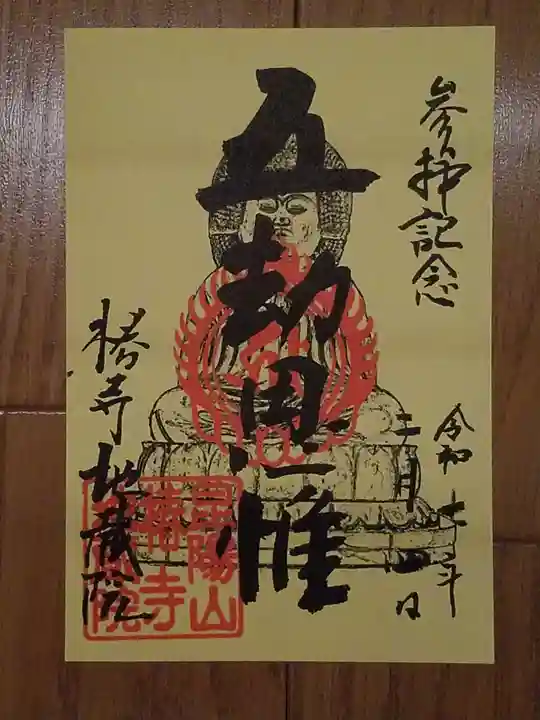 参拝記念
令和七年
月 日
五劫思惟
椿寺 地蔵院
昆陽山
椿寺
地蔵院